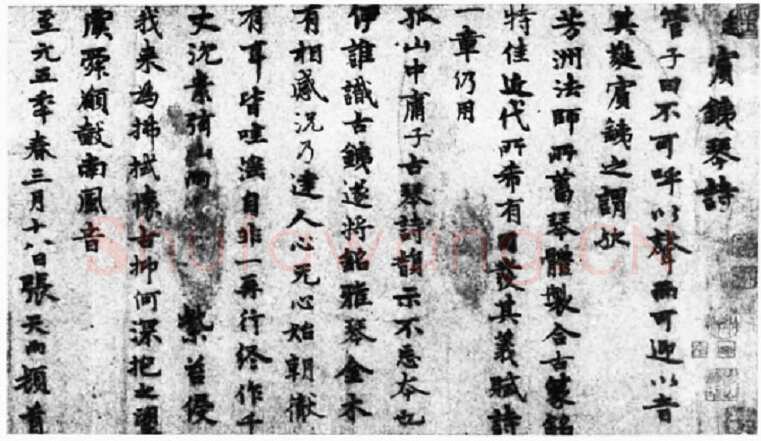 賓鐵琴詩
管子曰不可呼以聲而可迎以音
其蕤賓鐵之謂歟
芳洲法師所蓄琴體製合古篆銘
特佳近代所希有發其義賦詩
一章仍用
孤山中庸子古琴詩韻示不忘本也
伊誰識古鐵遂將銘雅琴金木
有相感況乃達人心无心始朝徹
有耳皆哇淫自非一再行終作千
丈沉素弦山雨紫苔侵
我來為拂拭懷古抑何深抱之望
虞舜願鼓南風音
至元五年春三月十八日張天雨頓首
Shufawang.CN